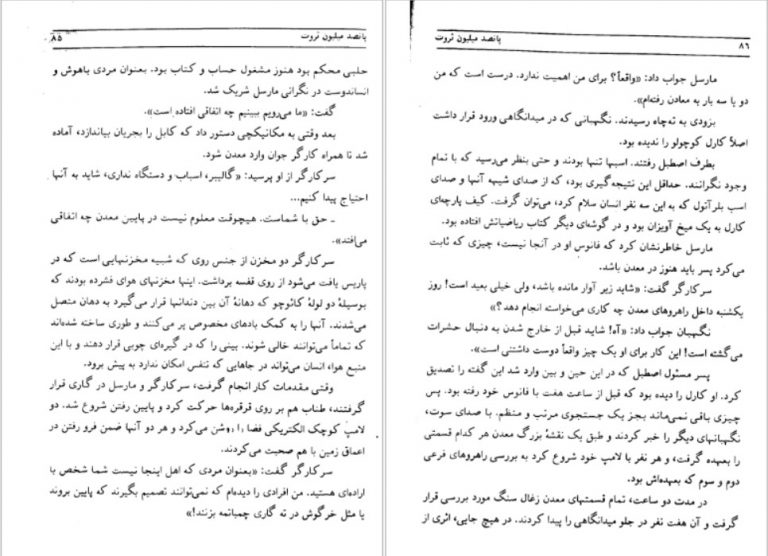 پانصد میلیون ثروت ۸۵
حلبی محکم بود هنوز مشغول حساب و کتاب بود. بعنوان مردی باهوش و
انساندوست در نگرانی مارسل شریک شد.
گفت: «ما می‌رویم ببینیم چه اتفاقی افتاده است».
بعد وقتی به مکانیکچی دستور داد که کابل را بجریان بیاندازد، آماده
شد تا همراه کارگر جوان وارد معدن شود.
سرکارگر از او پرسید: «گالیبر، اسباب و دستگاه نداری، شاید به آنها
احتیاج پیدا کنیم...
ـ حق با شماست. هیچوقت معلوم نیست در پایین معدن چه اتفاقی
می‌افتد».
سرکارگر دو مخزن از جنس روی که شبیه مخزنهایی است که در
پاریس یافت می‌شود از روی قفسه برداشت. اینها مخزنهای هوای فشرده بودند که
بوسیلهٔ دو لولهٔ کائوچو که دهانهٔ آن بین دندانها قرار می‌گیرد به دهان متصل
می‌شدند. آنها را به کمک بادهای مخصوص پر می‌کنند و طوری ساخته شده‌اند
که تماماً می‌توانند خالی شوند. بینی را که در گیره‌ای چوبی قرار دهند و با این
منبع هوا، انسان می‌تواند در جاهایی که تنفس امکان ندارد به پیش برود.
وقتی مقدمات کار انجام گرفت، سرکارگر و مارسل در گاری قرار
گرفتند، طناب هم بر روی قرقره‌ها حرکت کرد و پایین رفتن شروع شد. دو
لامپ کوچک الکتریکی فضا را روشن می‌کرد و هر دو آنها ضمن فرو رفتن در
اعماق زمین با هم صحبت می‌کردند.
سرکارگر گفت: «بعنوان مردی که اهل اینجا نیست شما شخص با
اراده‌ای هستید. من افرادی را دیده‌ام که نمی‌توانند تصمیم بگیرند که پایین بروند
یا مثل خرگوش در ته گاری چمباتمه بزنند!»
۸۶ پانصد میلیون ثروت
مارسل جواب داد: «واقعاً؟ برای من اهمیت ندارد. درست است که من
دو یا سه بار به معادن رفته‌ام».
بزودی به ته‌چاه رسیدند. نگهبانی که در میدانگاهی ورود قرار داشت
اصلاً کارل کوچولو را ندیده بود.
بطرف اصطبل رفتند. اسبها تنها بودند و حتی بنظر می‌رسید که با تمام
وجود نگرانند. حداقل این نتیجه‌گیری بود، که از صدای شیهه آنها و صدای
اسب بلرآتول که به این سه نفر انسان سلام کرد، می‌توان گرفت. کیف پارچه‌ای
کارل به یک میخ آویزان بود و در گوشه‌ای دیگر کتاب ریاضیاتش افتاده بود.
مارسل خاطرنشان کرد که فانوس او در آنجا نیست، چیزی که ثابت
می‌کرد پسر باید هنوز در معدن باشد.
سرکارگر گفت: «شاید زیر آوار مانده باشد، ولی خیلی بعید است! روز
یکشنبه داخل راهروهای معدن چه کاری می‌خواسته انجام دهد؟»
نگهبان جواب داد: «آه! شاید قبل از خارج شدن به دنبال حشرات
می‌گشته است! این کار برای او یک چیز واقعاً دوست داشتنی است».
پسر مسئول اصطبل که در این حین و بین وارد شد این گفته را تصدیق
کرد. او کارل را دیده بود که قبل از ساعت هفت با فانوس خود رفته بود. پس
چیزی باقی نمی‌ماند بجز یک جستجوی مرتب و منظم. با صدای سوت،
نگهبانهای دیگر را خبر کردند و طبق یک نقشهٔ بزرگ معدن هر کدام قسمتی
را بعهده گرفت، و هر نفر با لامپ خود شروع کرد به بررسی راهروهای فرعی
دوم و سوم که بعهده‌اش بود.
در مدت دو ساعت، تمام قسمتهای معدن زغال سنگ مورد بررسی قرار
گرفت و آن هفت نفر در جلو میدانگاهی را پیدا کردند. در هیچ جایی، اثری از